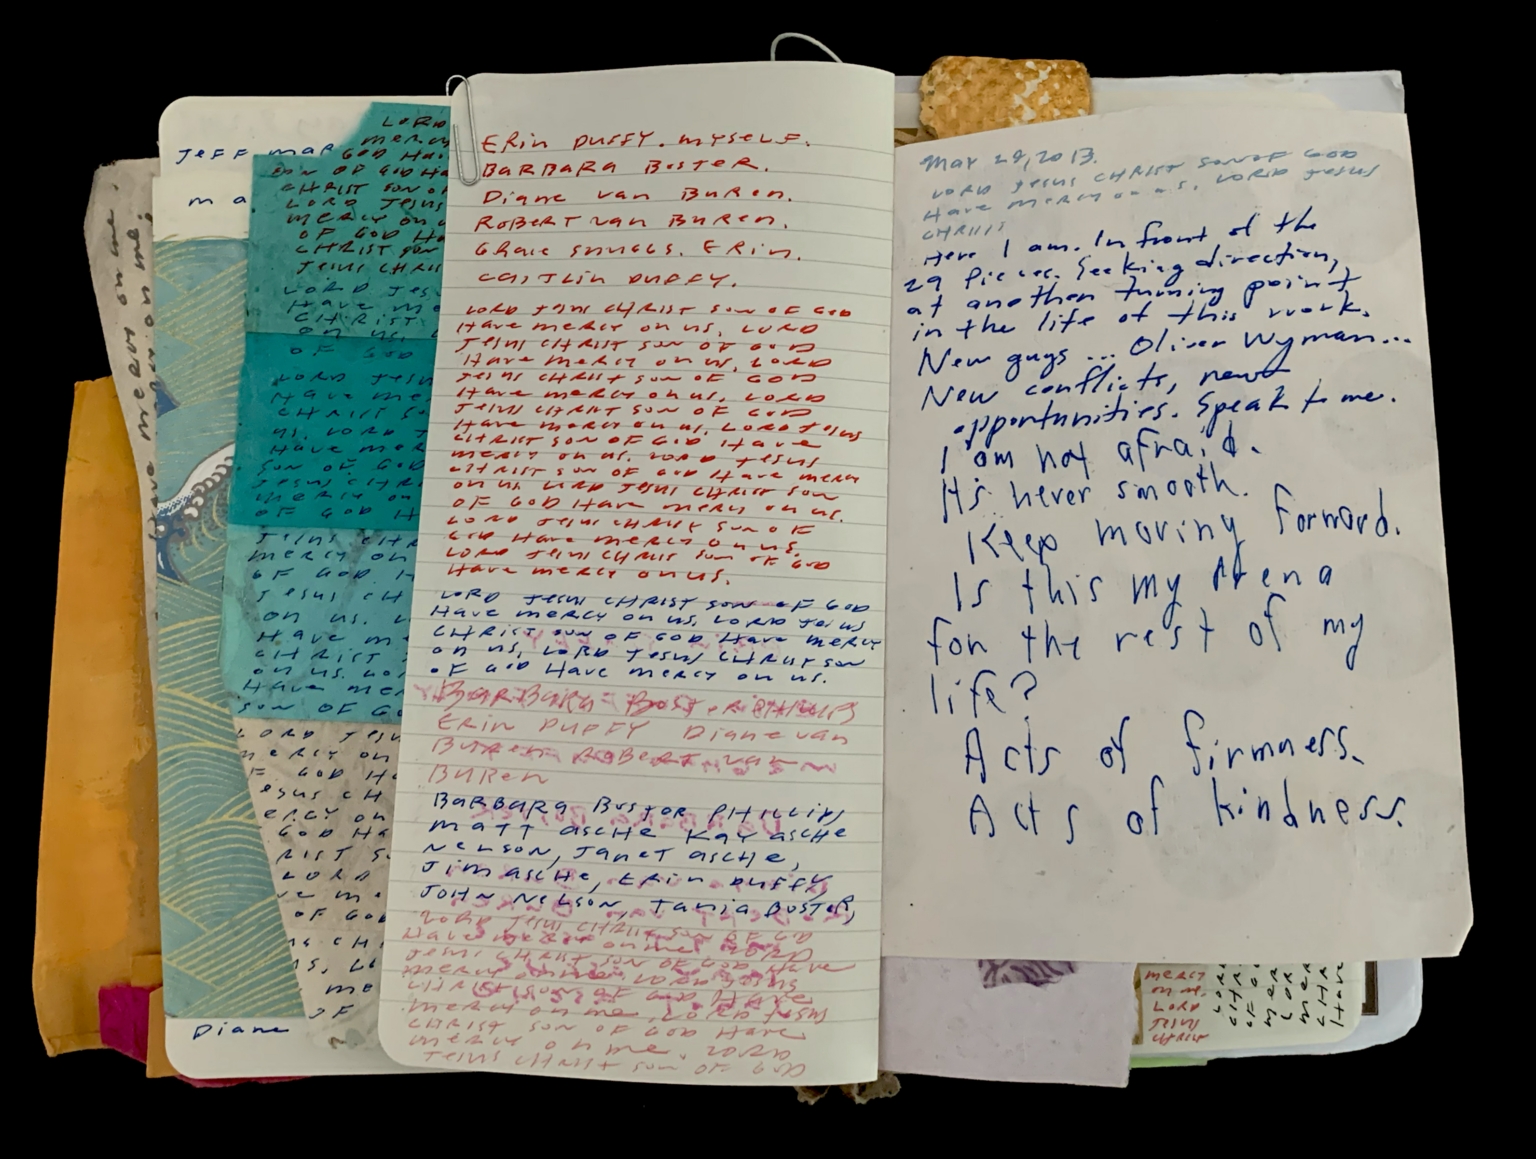 JEFF MAR
MA
LORD
MERCY
GOD HAV
SON OF GOD HA
CHRIST SON OF
LORD JESUS
MERCY ON U
OF GOD HA
CHRIST SON
JESUS CHRI
LORD JES
HAVE ME
CHRIST
ON US.
OF GOD
LORD JESU
HAVE ME
CHRIST SO
US. LORD
HAVE ME
SON OF GOD
JESUS CHR
MERCY ON
OF GOD H
JESUS CHR
MERCY ON
OF GOD. H
JESUS CH
ON US.
HAVE M
CHRIST
ON US. LO
HAVE ME
SON OF GO
LORD JESU
MERCY ON
F GOD HA
ESUS CH
ERCY ON
GOD HA
RIST S
LORD
VE M
OF GOD
US CH
US, LO
ME
OF
DIANE
HAVE MERCY ON ME.
ERIN DUFFY. MYSELF.
BARBARA BUSTER.
DIANE VAN BUREN.
ROBERT VAN BUREN.
ERIN.
CAITLIN DUFFY.
LORD JESUS CHRIST SON OF GOD
HAVE MERCY ON US, LORD
JESUS CHRIST SON OF GOD
HAVE MERCY ON US, LORD
JESUS CHRIST SON OF GOD
HAVE MERCY ON US, LORD
JESUS CHRIST SON OF GOD
HAVE MERCY ON US, LORD JESUS
CHRIST SON OF GOD HAVE
MERCY ON US. LORD JESUS
CHRIST SON OF GOD HAVE MERCY
ON US. LORD JESUS CHRIST SON
OF GOD HAVE MERCY ON US.
LORD JESUS CHRIST SON OF
GOD HAVE MERCY ON US.
LORD JESUS CHRIST SON OF GOD
HAVE MERCY ON US.
LORD JESUS CHRIST SON OF GOD
HAVE MERCY ON US, LORD JESUS
CHRIST SON OF GOD HAVE MERCY
ON US, LORD JESUS CHRIST SON
OF GOD HAVE MERCY ON US.
BARBARA
ERIN DUFFY DIANE VAN
BUREN ROBERT VAN
BUREN
BARBARA BUSTOR PHILLIPS
MATT ASCHE KAY ASCHE
NELSON, JANET ASCHE,
JIM ASCHE, ERIN DUFFY,
JOHN NELSON, TANIA BUSTER,
LORD JESUS CHRIST SON OF GOD
HAVE MERCY ON ME LORD
JESUS CHRIST SON OF GOD HAVE
MERCY ON ME LORD JESUS
CHRIST SON OF GOD HAVE
MERCY ON ME, LORD JESUS
CHRIST SON OF GOD HAVE
MERCY ON ME. LORD
JESUS CHRIST SON OF GOD
MAY 29, 2013.
LORD JESUS CHRIST SON OF GOD
HAVE MERCY ON US, LORD JESUS
CHRIST
Here I am. In front of the
29 pieces. Seeking direction,
at another turning point
in the life of this work.
New guys... Oliver Wyman...
New conflicts, new
opportunities. Speak to me.
I am not afraid.
It's never smooth.
Keep moving forward.
Is this my Arena
for the rest of my
life?
Acts of firmness.
Acts of kindness.
MERCY
ON ME.
LORD
JESUS
CHRIST
LOR
CHR
OF
MER
LOR
MER
CHR
HAVE